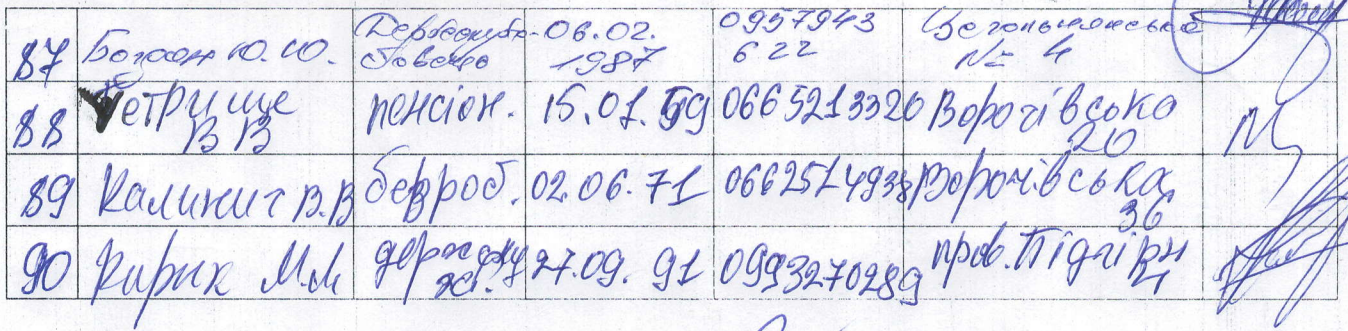 87 Богдан Ю.Ю. Держслужбовець 06.02.1987 0957943622 № 4
88 Петрище В В пенсіон. 15.01.59 0665213320 Ворочівська 20
89 Калинич В.В безроб. 02.06.71 0662574938 Ворочівська 36
90 Кирик М.М держслуж. 27.09.91 0993270289 пров. Підгірн 4